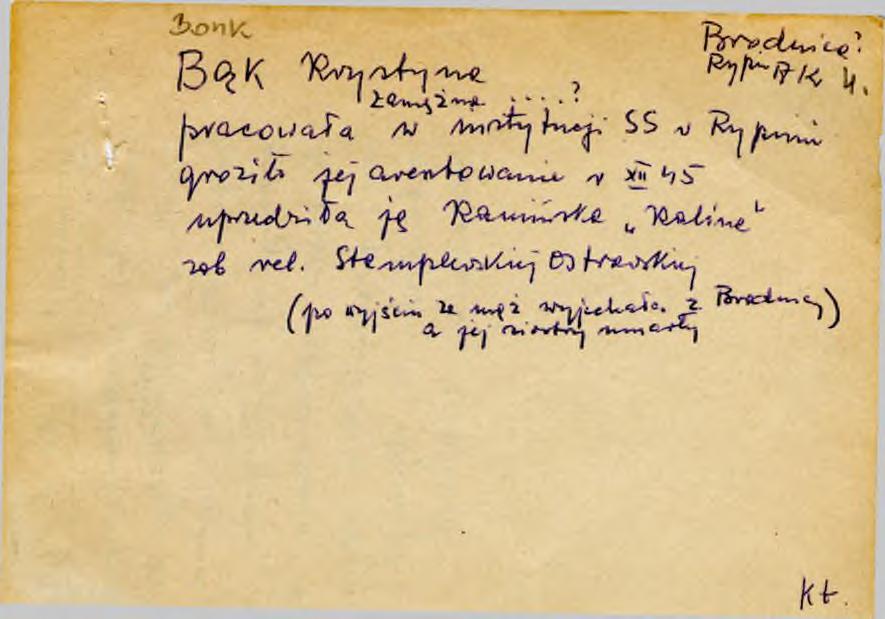 Bonk
Brodnica?
Rypin AK 4.
Bąk Krystyna
zamężna ....?
pracowała w instytucji SS w Rypinie
groziło jej aresztowanie w XII 45
uprzedziła ją Kamińska „Kalina"
zob rel. Stemplewskiej Ostrowskiej
(po wyjściu za mąż wyjechała z Brodnicy)
a jej siostry umarły
Kt.